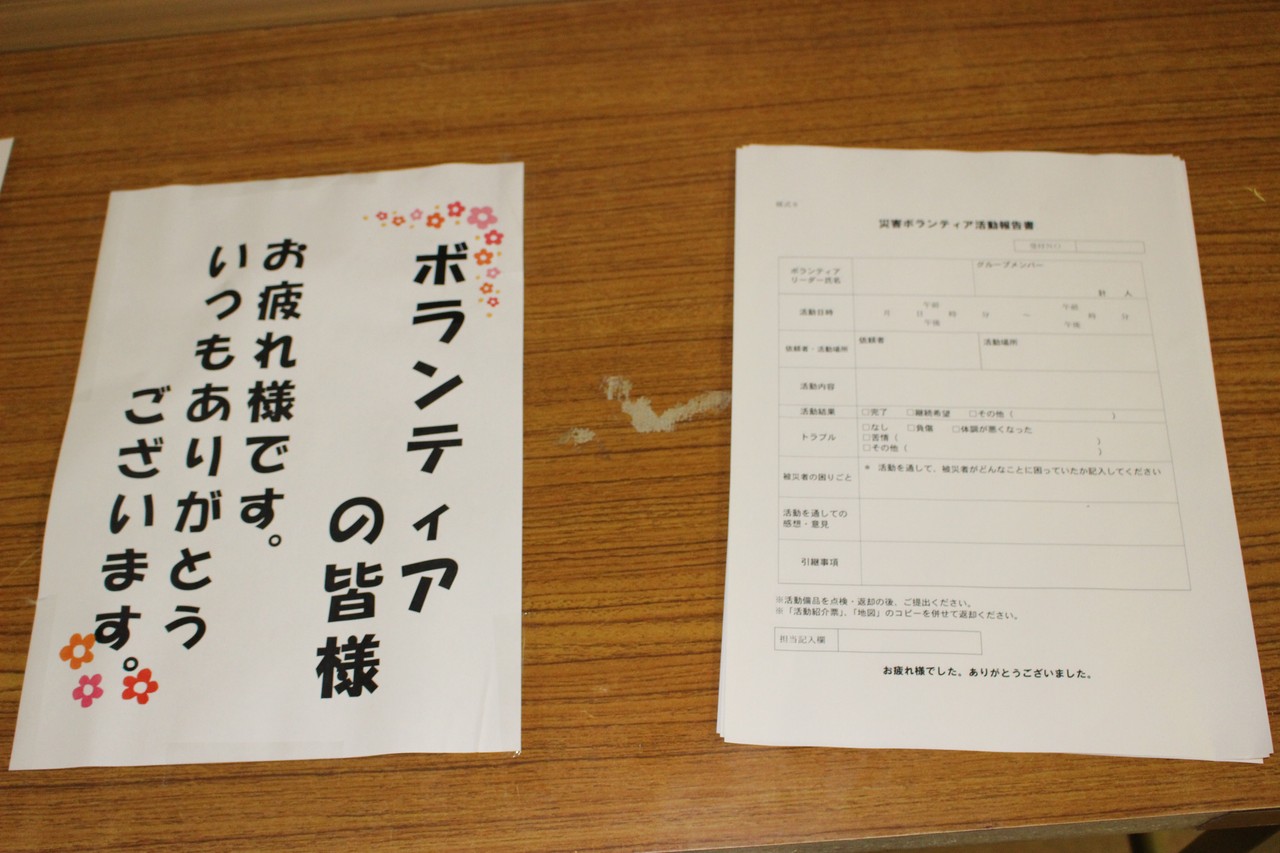 ボランティア
の皆様
お疲れ様です。
いつもありがとう
ございます。
災害ボランティア活動報告書
ボランティア
リーダー氏名
グループメンバー
計　人
活動日時
月　日　午前　時　分　～　午前　時　分
午後　午後
依頼者・活動場所
依頼者
活動場所
活動内容
活動結果
□完了　□継続希望　□その他（　）
トラブル
□なし　□負傷　□体調が悪くなった
□苦情（　）
□その他（　）
被災者の困りごと
＊ 活動を通して、被災者がどんなことに困っていたか記入してください
活動を通しての
感想・意見
引継事項
※活動備品を点検・返却の後、ご提出ください。
※「活動紹介票」、「地図」のコピーを併せて返却ください。
担当記入欄
お疲れ様でした。ありがとうございました。